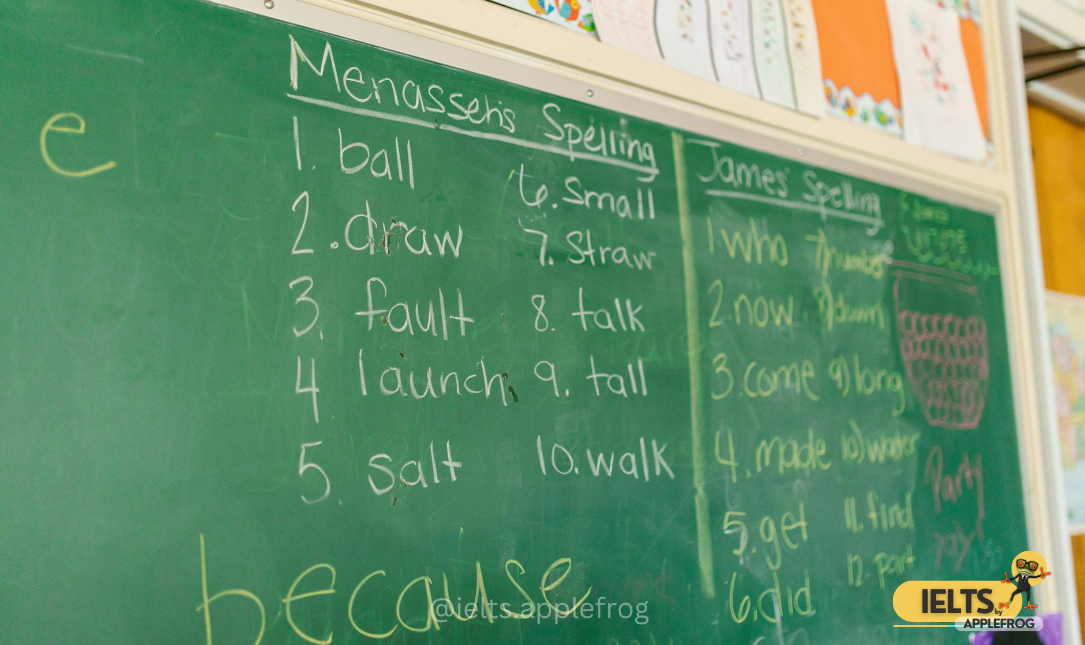 e
Menasseh's Spelling
1. ball
2. draw
3. fault
4 launch
5. salt
6. Small
7. Straw
8. talk
9. tall
10. walk
because
James' Spelling
1 who
2. now
3. come
4. made
5. get
6. did
7) number
8) down
9) long
10) water
11. find
12. part
Party
yay!
@ielts.applefrog
IELTS by
APPLEFROG